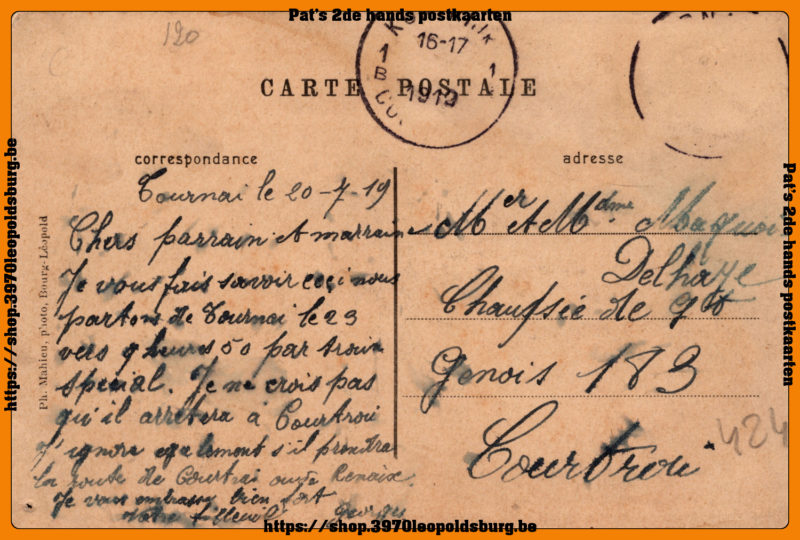 Pat's 2de hands postkaarten
120
16-17
1 1
B
1919
CARTE POSTALE
correspondance
adresse
Tournai le 20-7-19
Chers parrain et marraine
Je vous fais savoir ceçi nous
partons de Tournai le 23
vers 9 heures 50 par train
spécial. Je ne crois pas
qu'il arrêtera à Courtrai
J'ignore egalement s'il prendra
la route de Courtrai ou de Renaix.
Je vous embrasse bien fort
Votre filleul Georges
Mer et Mdme Maquoi
Delhaye
Chaufsée de
Genois 183
Courtrai
424
Ph. Mahieu, photo, Bourg-Léopold
https://shop.3970leopoldsburg.be
Pat's 2de hands postkaarten
https://shop.3970leopoldsburg.be